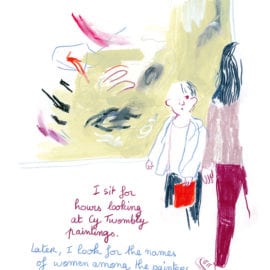 I sit for
hours looking
at Cy Twombly
paintings.
Later, I look for the names
of women among the painters